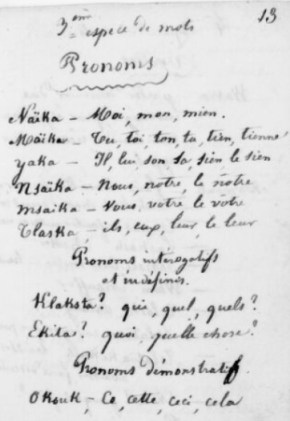 13
3ème espèce de mots
Pronoms
Naïka – Moi, mon, mien.
Maïka – Tu, toi, ton, ta, tien, tienne
yaka – Il, lui son sa, sien le sien
Nsaïka – Nous, nôtre, le nôtre
msaika – Vous, votre le vôtre
Tlaska – ils, eux, leur, le leur
Pronoms intérogatifs
et indéfinis.
Klaksta? qui, quel, quels?
Ekita? quoi, quelle chose?
Pronoms démonstratifs
Okouk – Ce, cette, ceci, cela